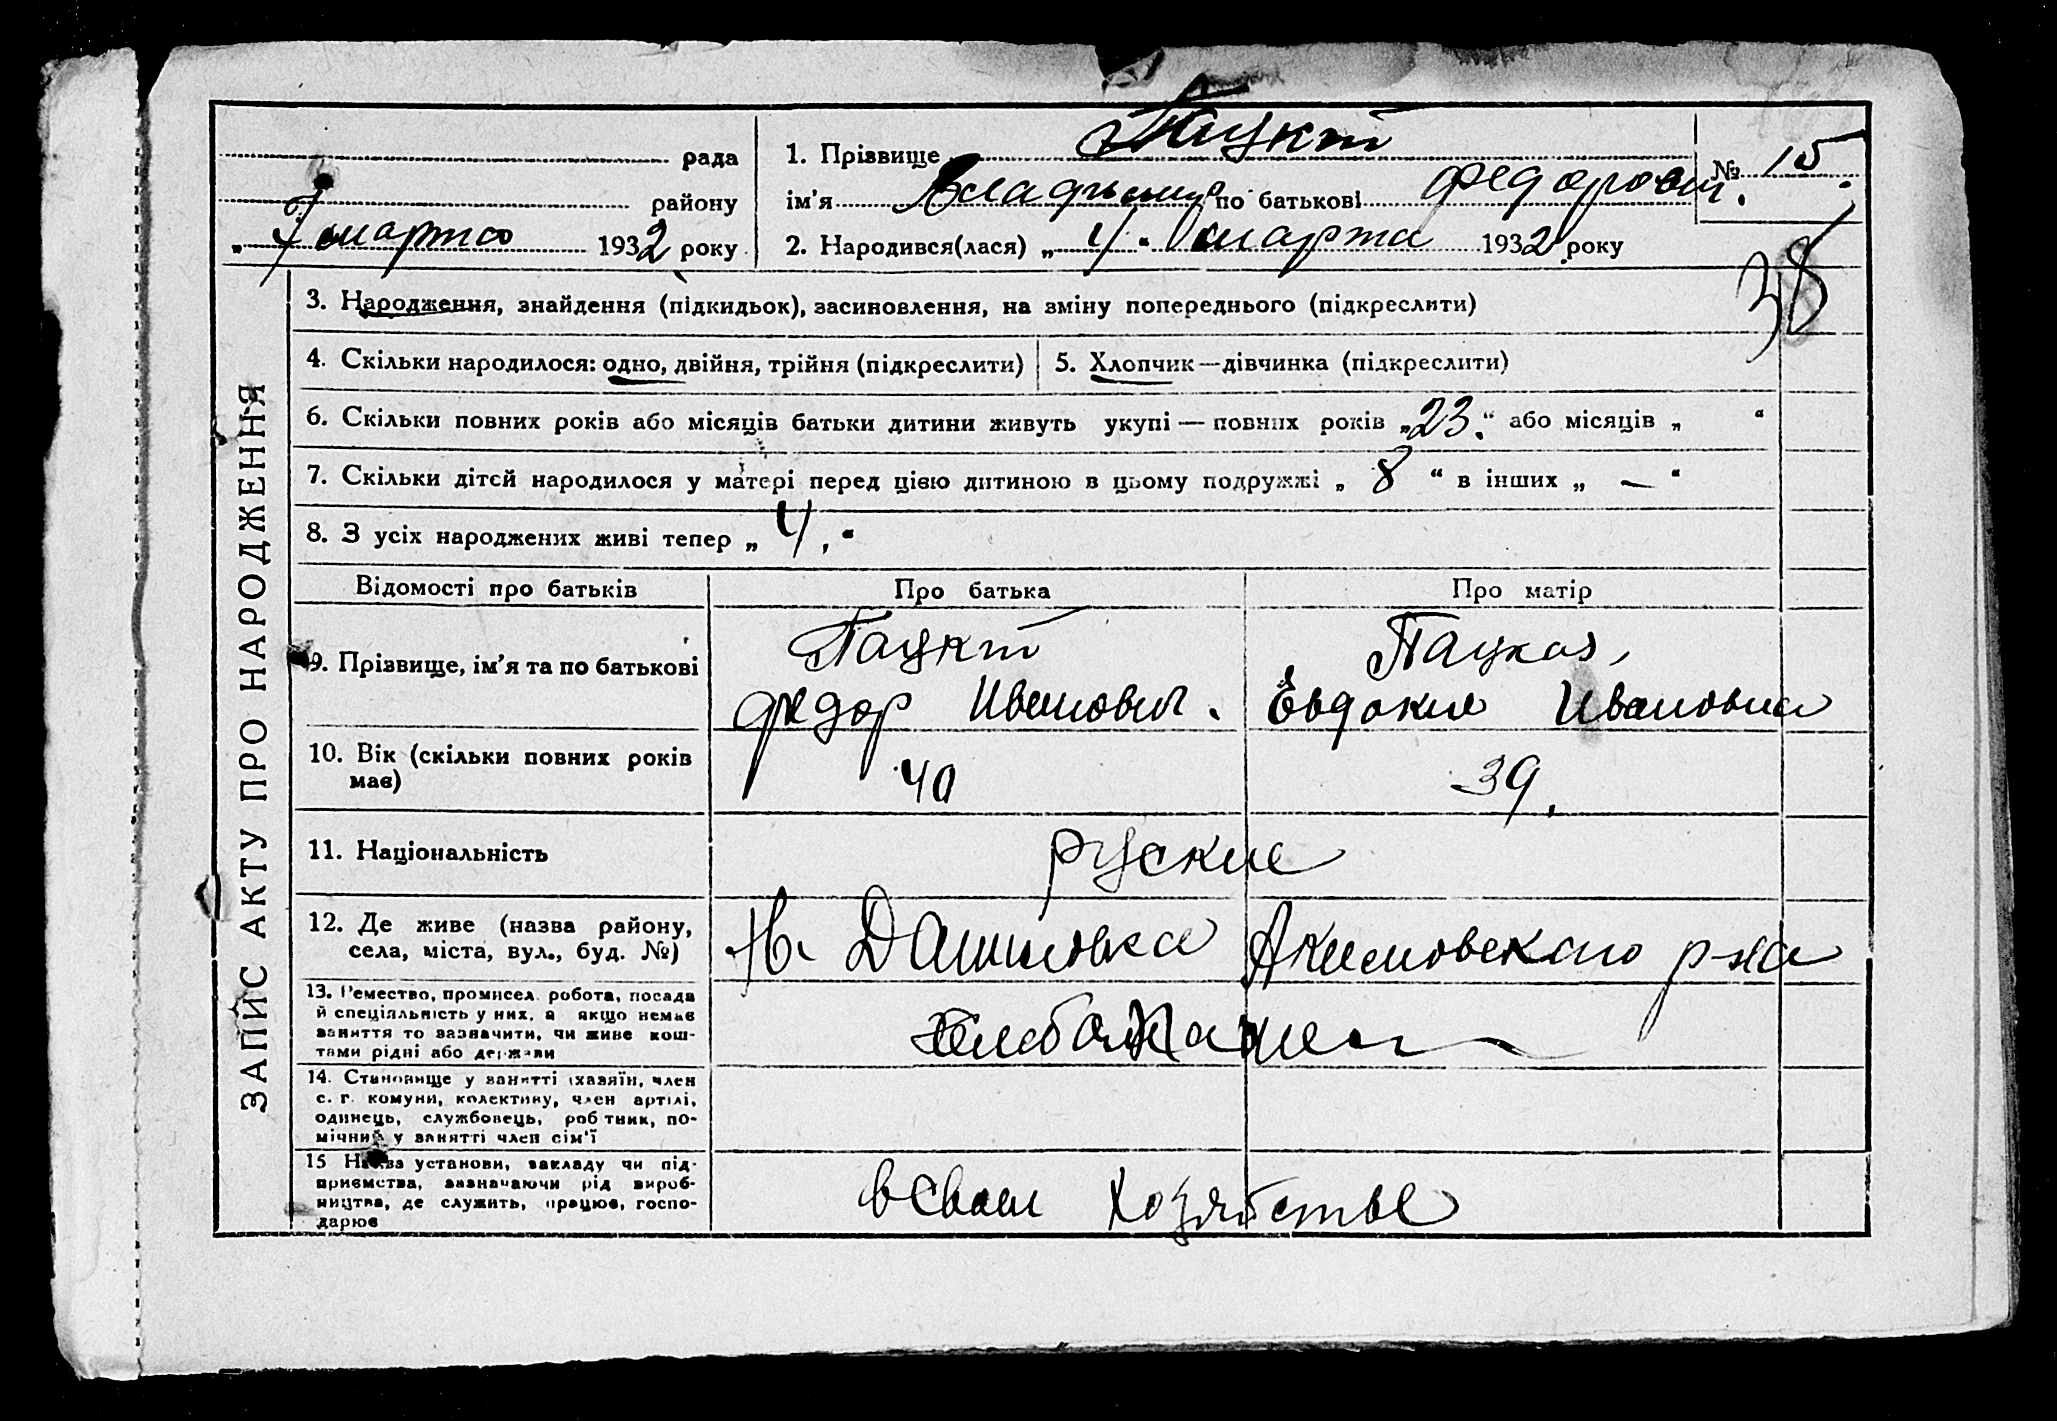 рада
району
„ 7 марта 1932 року
1. Прізвище Пацкий
ім'я Владимир по батькові Федорович.
2. Народився(лася) „ 4 “ марта 1932 року
№ 15.
38
ЗАПИС АКТУ ПРО НАРОДЖЕННЯ
3. Народження, знайдення (підкидьок), засиновлення, на зміну попереднього (підкреслити)
4. Скільки народилося: одно, двійня, трійня (підкреслити)
5. Хлопчик—дівчинка (підкреслити)
6. Скільки повних років або місяців батьки дитини живуть укупі — повних років „23.“ або місяців „ “
7. Скільки дітей народилося у матері перед цією дитиною в цьому подружжі „ 8 “ в інших „ — “
8. З усіх народжених живі тепер „ 4. “
Відомості про батьків Про батька Про матір
9. Прізвище, ім'я та по батькові
Пацкий
Федор Иванович.
Пацкая,
Евдокия Ивановна
10. Вік (скільки повних років
має)
40
39.
11. Національність
руские
12. Де живе (назва району,
села, міста, вул., буд. №)
Н. Даниловка Акимовского р-на
13. Ремество, промисел, робота, посада
й спеціяльність у них, а якщо немає
заняття то зазначити, чи живе кош-
тами рідні або держави
14. Становище у занятті (хазяїн, член
с. г. комуни, колективу, член артілі,
одинець, службовець, робітник, по-
мічний у занятті член сім'ї
15 Назва установи, закладу чи під-
приємства, зазначаючи рід вироб-
ництва, де служить, працює, госпо-
дарює
в своем хозяйстве